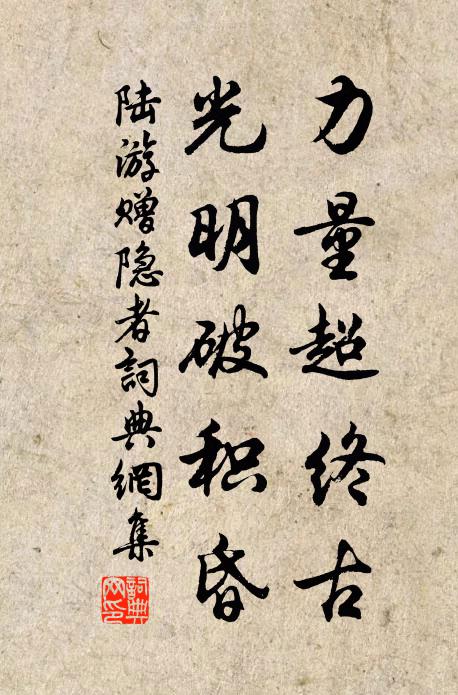 力量超终古
光明破积昏
陆游赠隐者詞典網集
詞典网印